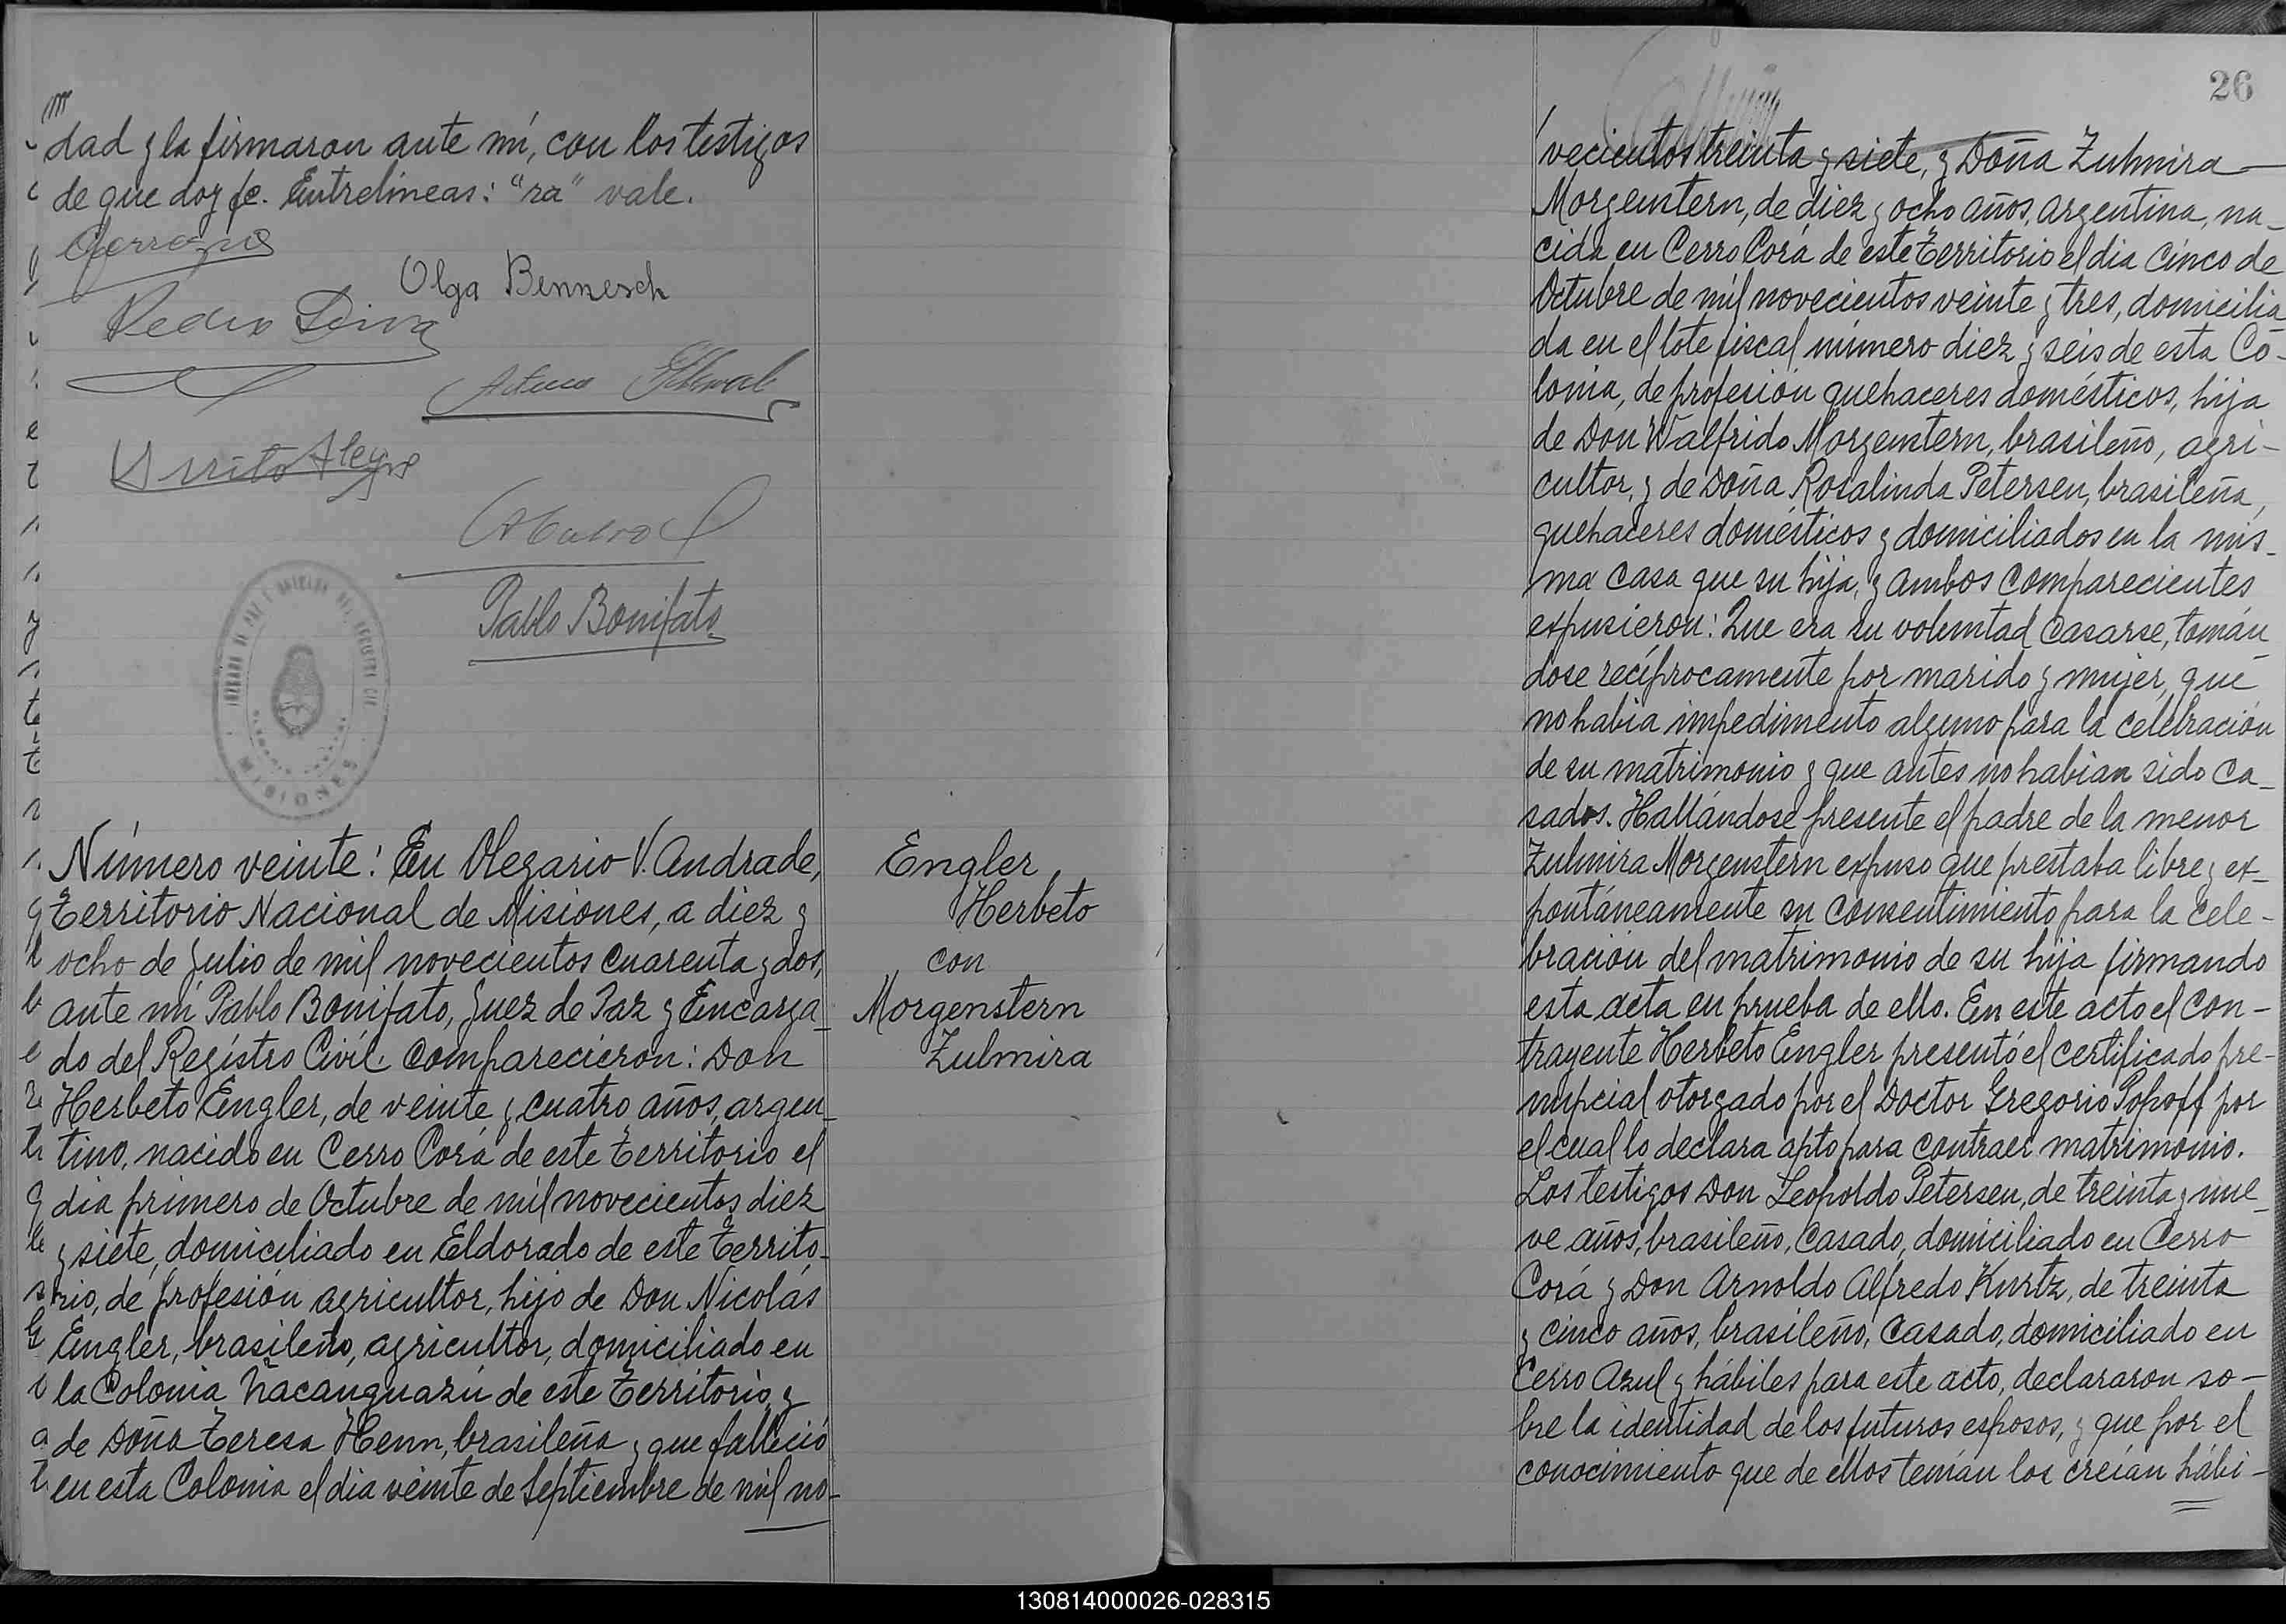 dad y la firmaron ante mí, con los testigos
de que doy fe. Entrelíneas: "ra" vale.
Olga Bennesch
Pedro
Arturo
Alegre
Pablo Bonifato
MISIONES
Número veinte: En Olegario V. Andrade,
Territorio Nacional de Misiones, a diez y
ocho de Julio de mil novecientos cuarenta y dos,
ante mí Pablo Bonifato, Juez de Paz y Encarga_
do del Registro Civil. comparecieron: Don
Herbeto Engler, de veinte y cuatro años, argen_
tino, nacido en Cerro Corá de este Territorio el
dia primero de Octubre de mil novecientos diez
y siete, domiciliado en Eldorado de este Territo_
rio, de profesión agricultor, hijo de Don Nicolás
Engler, brasileño, agricultor, domiciliado en
la Colonia Ñacanguazú de este Territorio, y
de Doña Teresa Henn, brasileña y que falleció
en esta Colonia el dia veinte de Septiembre de mil no-
Engler
Herbeto
con
Morgenstern
Zulmira
26
vecientos treinta y siete, y Doña Zulmira
Morgenstern, de diez y ocho años, argentina, na_
cida en Cerro Corá de este Territorio el dia cinco de
Octubre de mil novecientos veinte y tres, domicilia
da en el lote fiscal número diez y seis de esta Co-
lonia, de profesión quehaceres domésticos, hija
de Don Walfrido Morgenstern, brasileño, agri-
cultor, y de Doña Rosalinda Petersen, brasileña,
quehaceres domésticos y domiciliados en la mis_
ma casa que su hija, y ambos comparecientes
expusieron: Que era su voluntad casarse, tomán
dose recíprocamente por marido y mujer, que
no habia impedimento alguno para la celebración
de su matrimonio y que antes no habian sido ca_
sados. Hallándose presente el padre de la menor
Zulmira Morgenstern expuso que prestaba libre y ex_
pontáneamente su consentimiento para la cele-
bración del matrimonio de su hija firmando
esta acta en prueba de ello. En este acto el con-
trayente Herbeto Engler presentó el certificado pre-
nupcial otorgado por el Doctor Gregorio Pohoff por
el cual lo declara apto para contraer matrimonio.
Los testigos Don Leopoldo Petersen, de treinta y nue_
ve años, brasileño, casado, domiciliado en Cerro
Corá y Don Arnoldo Alfredo Kurtz, de treinta
y cinco años, brasileño, casado, domiciliado en
Cerro Azul y hábiles para este acto, declararon so-
bre la identidad de los futuros esposos, y que por el
conocimiento que de ellos tenían los creían hábi-
130814000026-028315